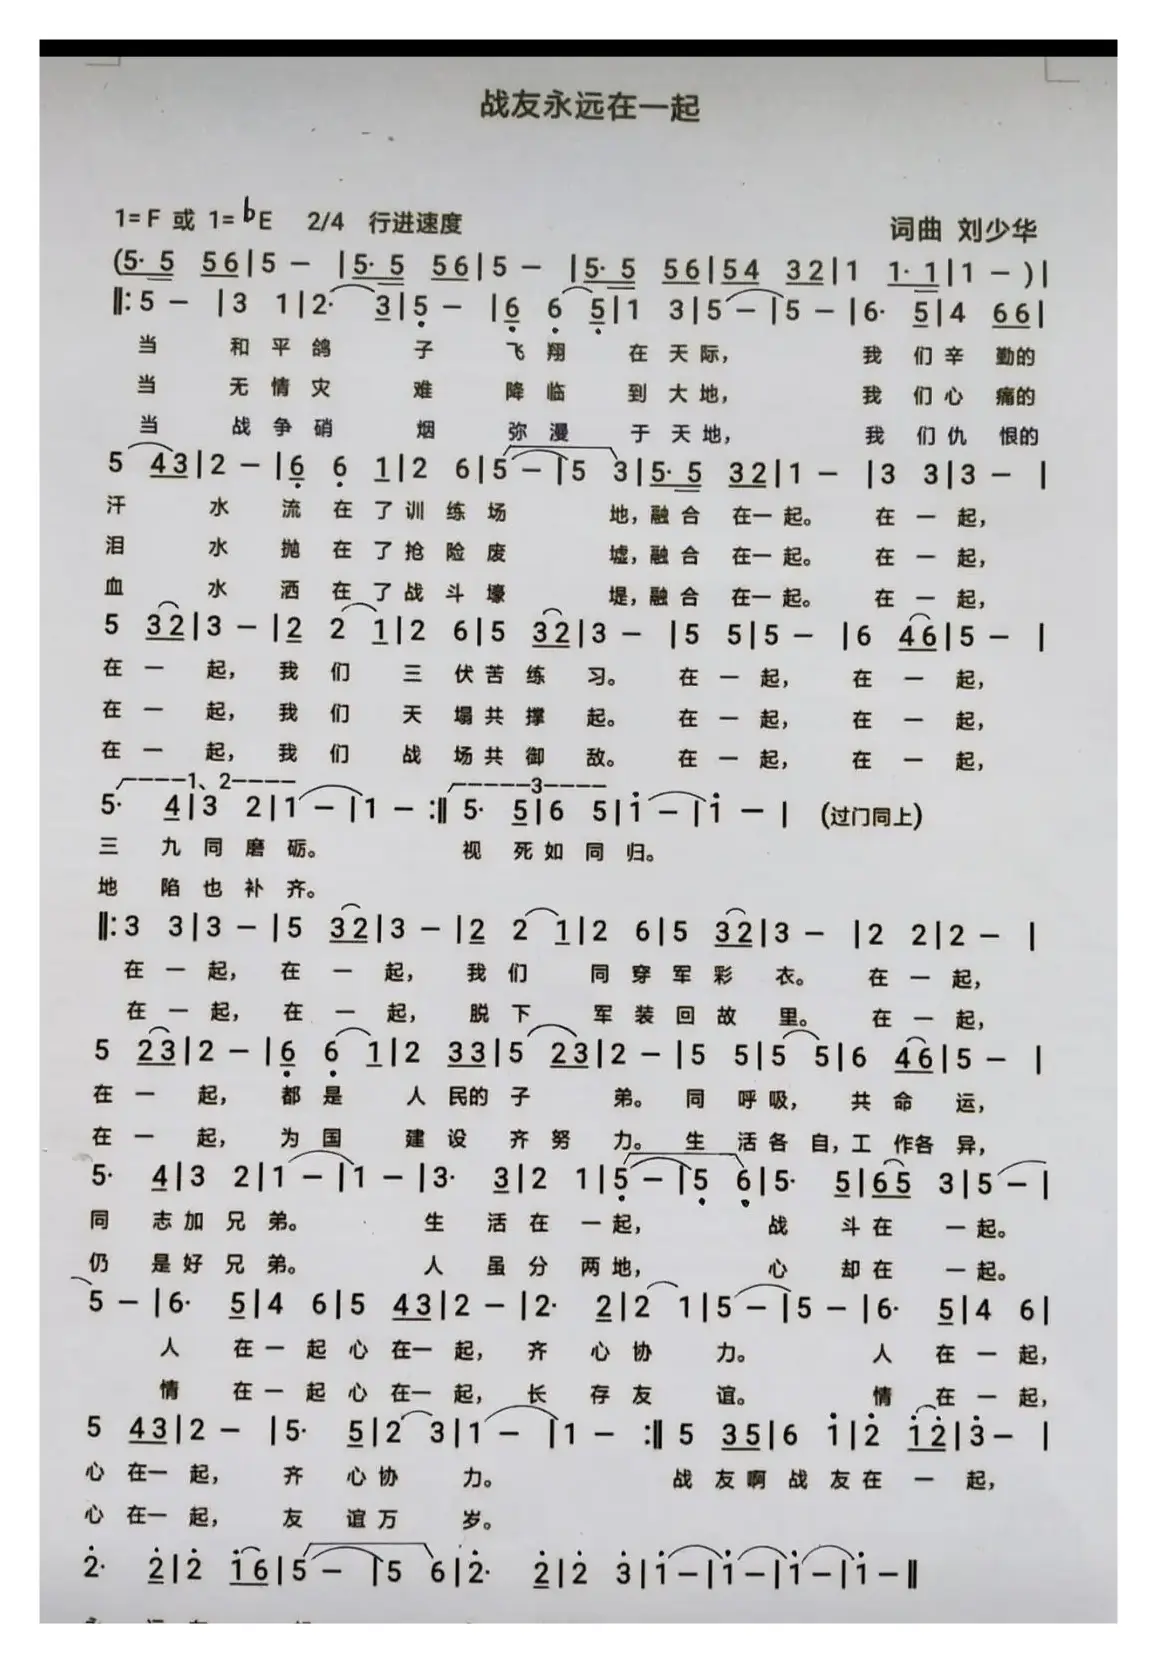 战友永远在一起
1=F 或 1=♭E 2/4 行进速度 词曲 刘少华
(5· 5 56|5 — |5· 5 56|5 — |5· 5 56|54 32|1 1· 1|1 — )|
‖:5 — |3 1|2· 3|5 — |6 6 5|1 3|5 — |5 — |6· 5|4 66|
当 和平鸽 子 飞翔 在天际， 我 们辛 勤的
当 无情灾 难 降临 到大地， 我 们心 痛的
当 战争硝 烟 弥漫 于天地， 我 们仇 恨的
5 43|2 — |6 6 1|2 6|5 — |5 3|5· 5 32|1 — |3 3|3 — |
汗 水 流 在 了训 练 场 地，融 合 在一起。 在 一 起，
泪 水 抛 在 了抢 险 废 墟，融 合 在一起。 在 一 起，
血 水 洒 在 了战 斗 壕 堤，融 合 在一起。 在 一 起，
5 32|3 — |2 2 1|2 6|5 32|3 — |5 5|5 — |6 46|5 — |
在 一 起， 我 们 三 伏苦 练 习。 在 一 起， 在 一 起，
在 一 起， 我 们 天 塌共 撑 起。 在 一 起， 在 一 起，
在 一 起， 我 们 战 场共 御 敌。 在 一 起， 在 一 起，
1、2 3
5· 4|3 2|1 — |1 — :‖ 5· 5|6 5|1 — |1 — | (过门同上)
三 九 同 磨 砺。 视 死如 同 归。
地 陷 也 补 齐。
‖:3 3|3 — |5 32|3 — |2 2 1|2 6|5 32|3 — |2 2|2 — |
在 一 起， 在 一 起， 我 们 同 穿 军 彩 衣。 在 一 起，
在 一 起， 在 一 起， 脱 下 军 装 回 故 里。 在 一 起，
5 23|2 — |6 6 1|2 33|5 23|2 — |5 5|5 5|6 46|5 — |
在 一 起， 都 是 人 民的 子 弟。 同 呼 吸， 共 命 运，
在 一 起， 为 国 建 设 齐 努 力。 生 活 各 自，工 作各 异，
5· 4|3 2|1 — |1 — |3· 3|2 1|5 — |5 6|5· 5|65 3|5 — |
同 志加 兄 弟。 生 活 在 一起， 战 斗 在 一起。
仍 是好 兄 弟。 人 虽 分 两地， 心 却 在 一起。
5 — |6· 5|4 6|5 43|2 — |2· 2|2 1|5 — |5 — |6· 5|4 6|
人 在 一 起 心 在一 起， 齐 心 协 力。 人 在 一 起，
情 在 一 起 心 在一 起， 长 存 友 谊。 情 在 一 起，
5 43|2 — |5· 5|2 3|1 — |1 — :‖ 5 35|6 1|2 12|3 — |
心 在一 起， 齐 心 协 力。 战 友 啊 战 友 在 一 起，
心 在一 起， 友 谊 万 岁。
2· 2|2 16|5 — |5 6|2· 2|2 3|1 — |1 — |1 — |1 — ‖